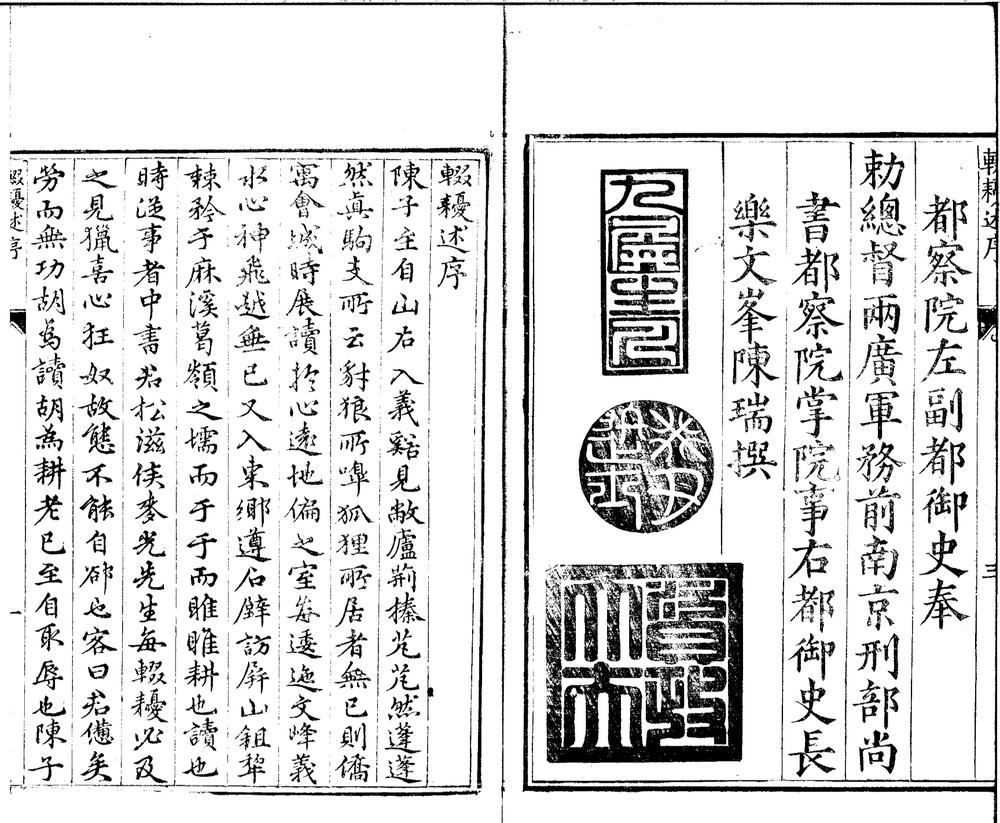 輟耕述序 三
都察院左副都御史奉
勅總督兩廣軍務前南京刑部尚
書都察院掌院事右都御史長
樂文峯陳瑞撰
輟耰述序
陳子至自山右入義谿見敝廬荊榛茫茫然蓬蓬
然真駒支所云豺狼所嘷狐狸所居者無已則僑
寓會城時展讀於心遠地偏之室每逶迤文峰義
水心神飛越無已又入東鄉遵石壁訪屏山鉏犂
棘矜于麻溪葛嶺之壖而于于而睢睢耕也讀也
時從事者中書君松滋侯麥光先生每輟耰必及
之見獵喜心狂奴故態不能自卻也客曰君憊矣
勞而無功胡為讀胡為耕老已至自取辱也陳子
輟耰述序 一